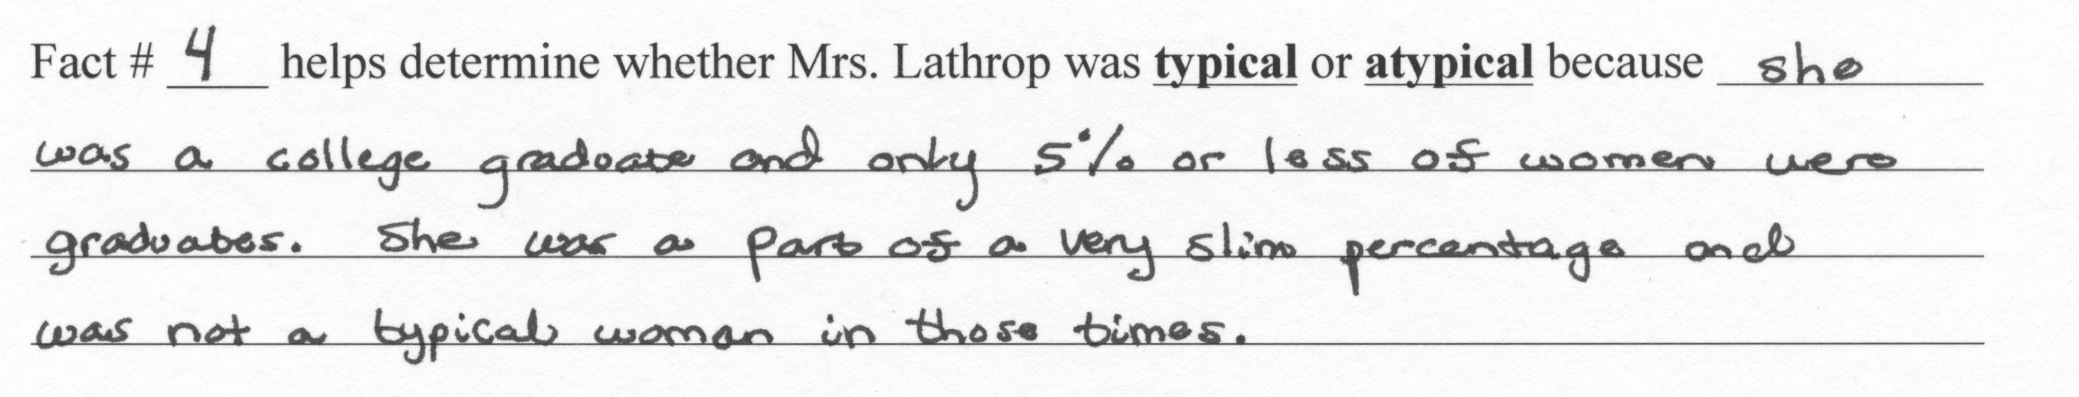 Fact # 4 helps determine whether Mrs. Lathrop was typical or atypical because she
was a college graduate and only 5% or less of women were
graduates. She was a part of a very slim percentage and
was not a typical woman in those times.